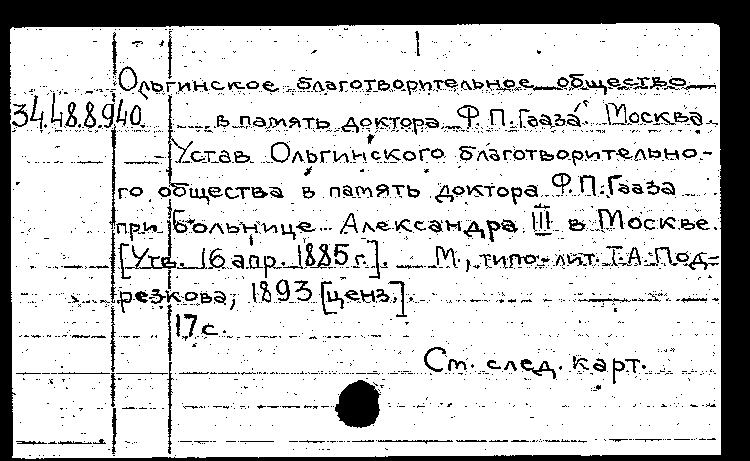 Ольгинское благотворительное общество
34.48.8.940 в память доктора Ф.П.Гааза. Москва.
Устав Ольгинского благотворительно-
го общества в память доктора Ф.П.Гааза
при больнице Александра III в Москве.
[Утв. 16 апр. 1885 г.]. М., типо-лит. Т.А. Под-
резкова, 1893 [ценз.].
17 с.
См. след. карт.